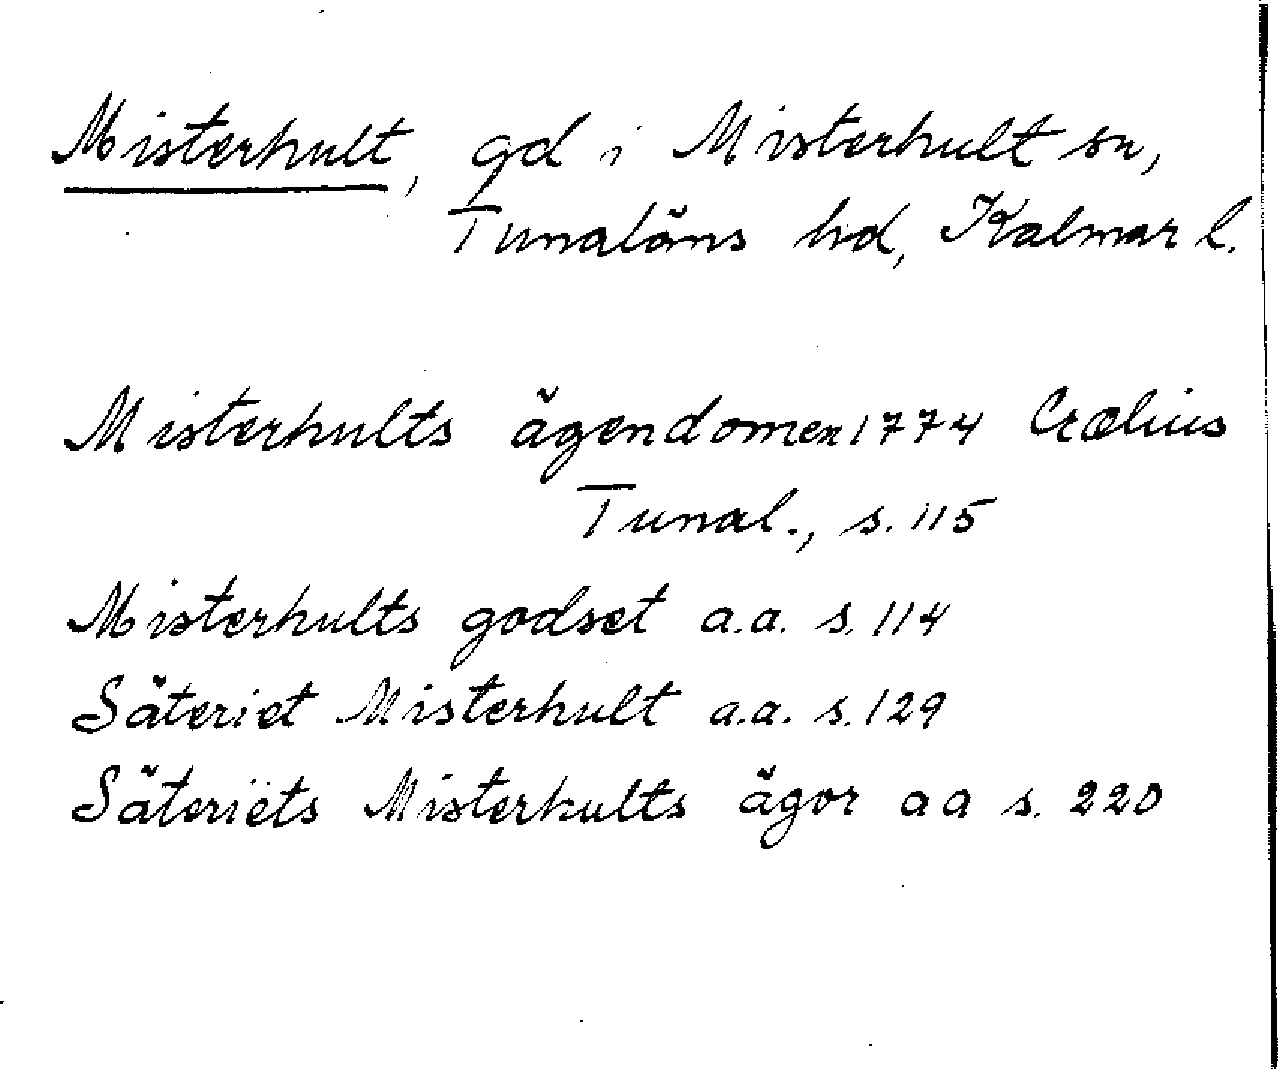 Misterhult, gd i Misterhult sn,
Tunaläns hd, Kalmar l.
Misterhults ägendomer 1774 Crælius
Tunal., s. 115
Misterhults godset a.a. s. 114
Säteriet Misterhult a.a. s. 129
Säteriets Misterhults ägor a a s. 220